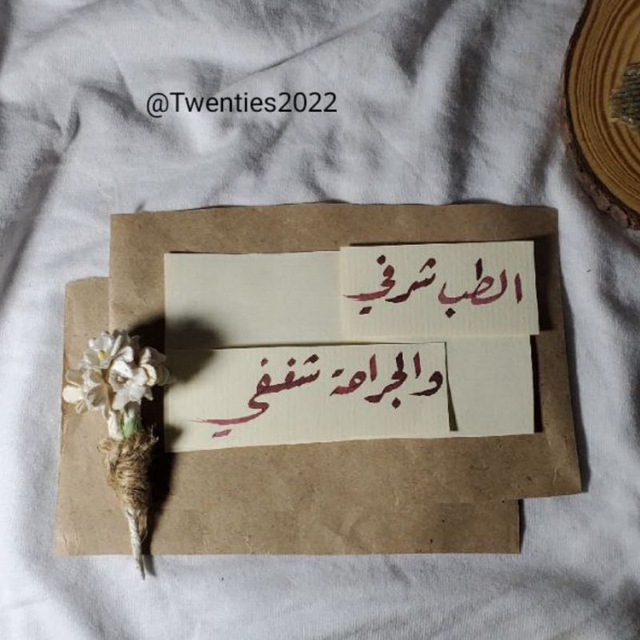 @Twenties2022
الطب شرفي
والجراحة شغفي